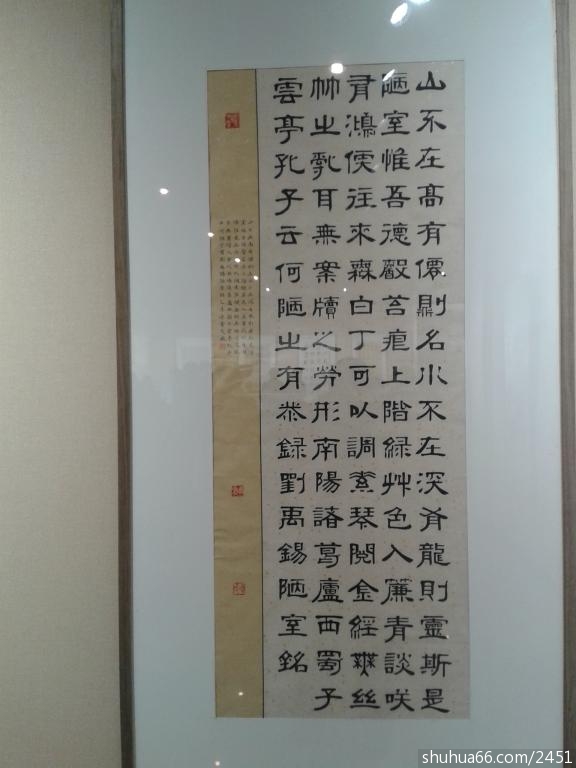 山不在高有僊則名水不在深有龍則靈斯是
陋室惟吾德馨苔痕上階緑艸色入簾青談咲
有鴻儒往來無白丁可以調素琴閱金經無絲
竹之亂耳無案牘之勞形南陽諸葛廬西蜀子
雲亭孔子云何陋之有恭録劉禹錫陋室銘
shuhua66.com/2451